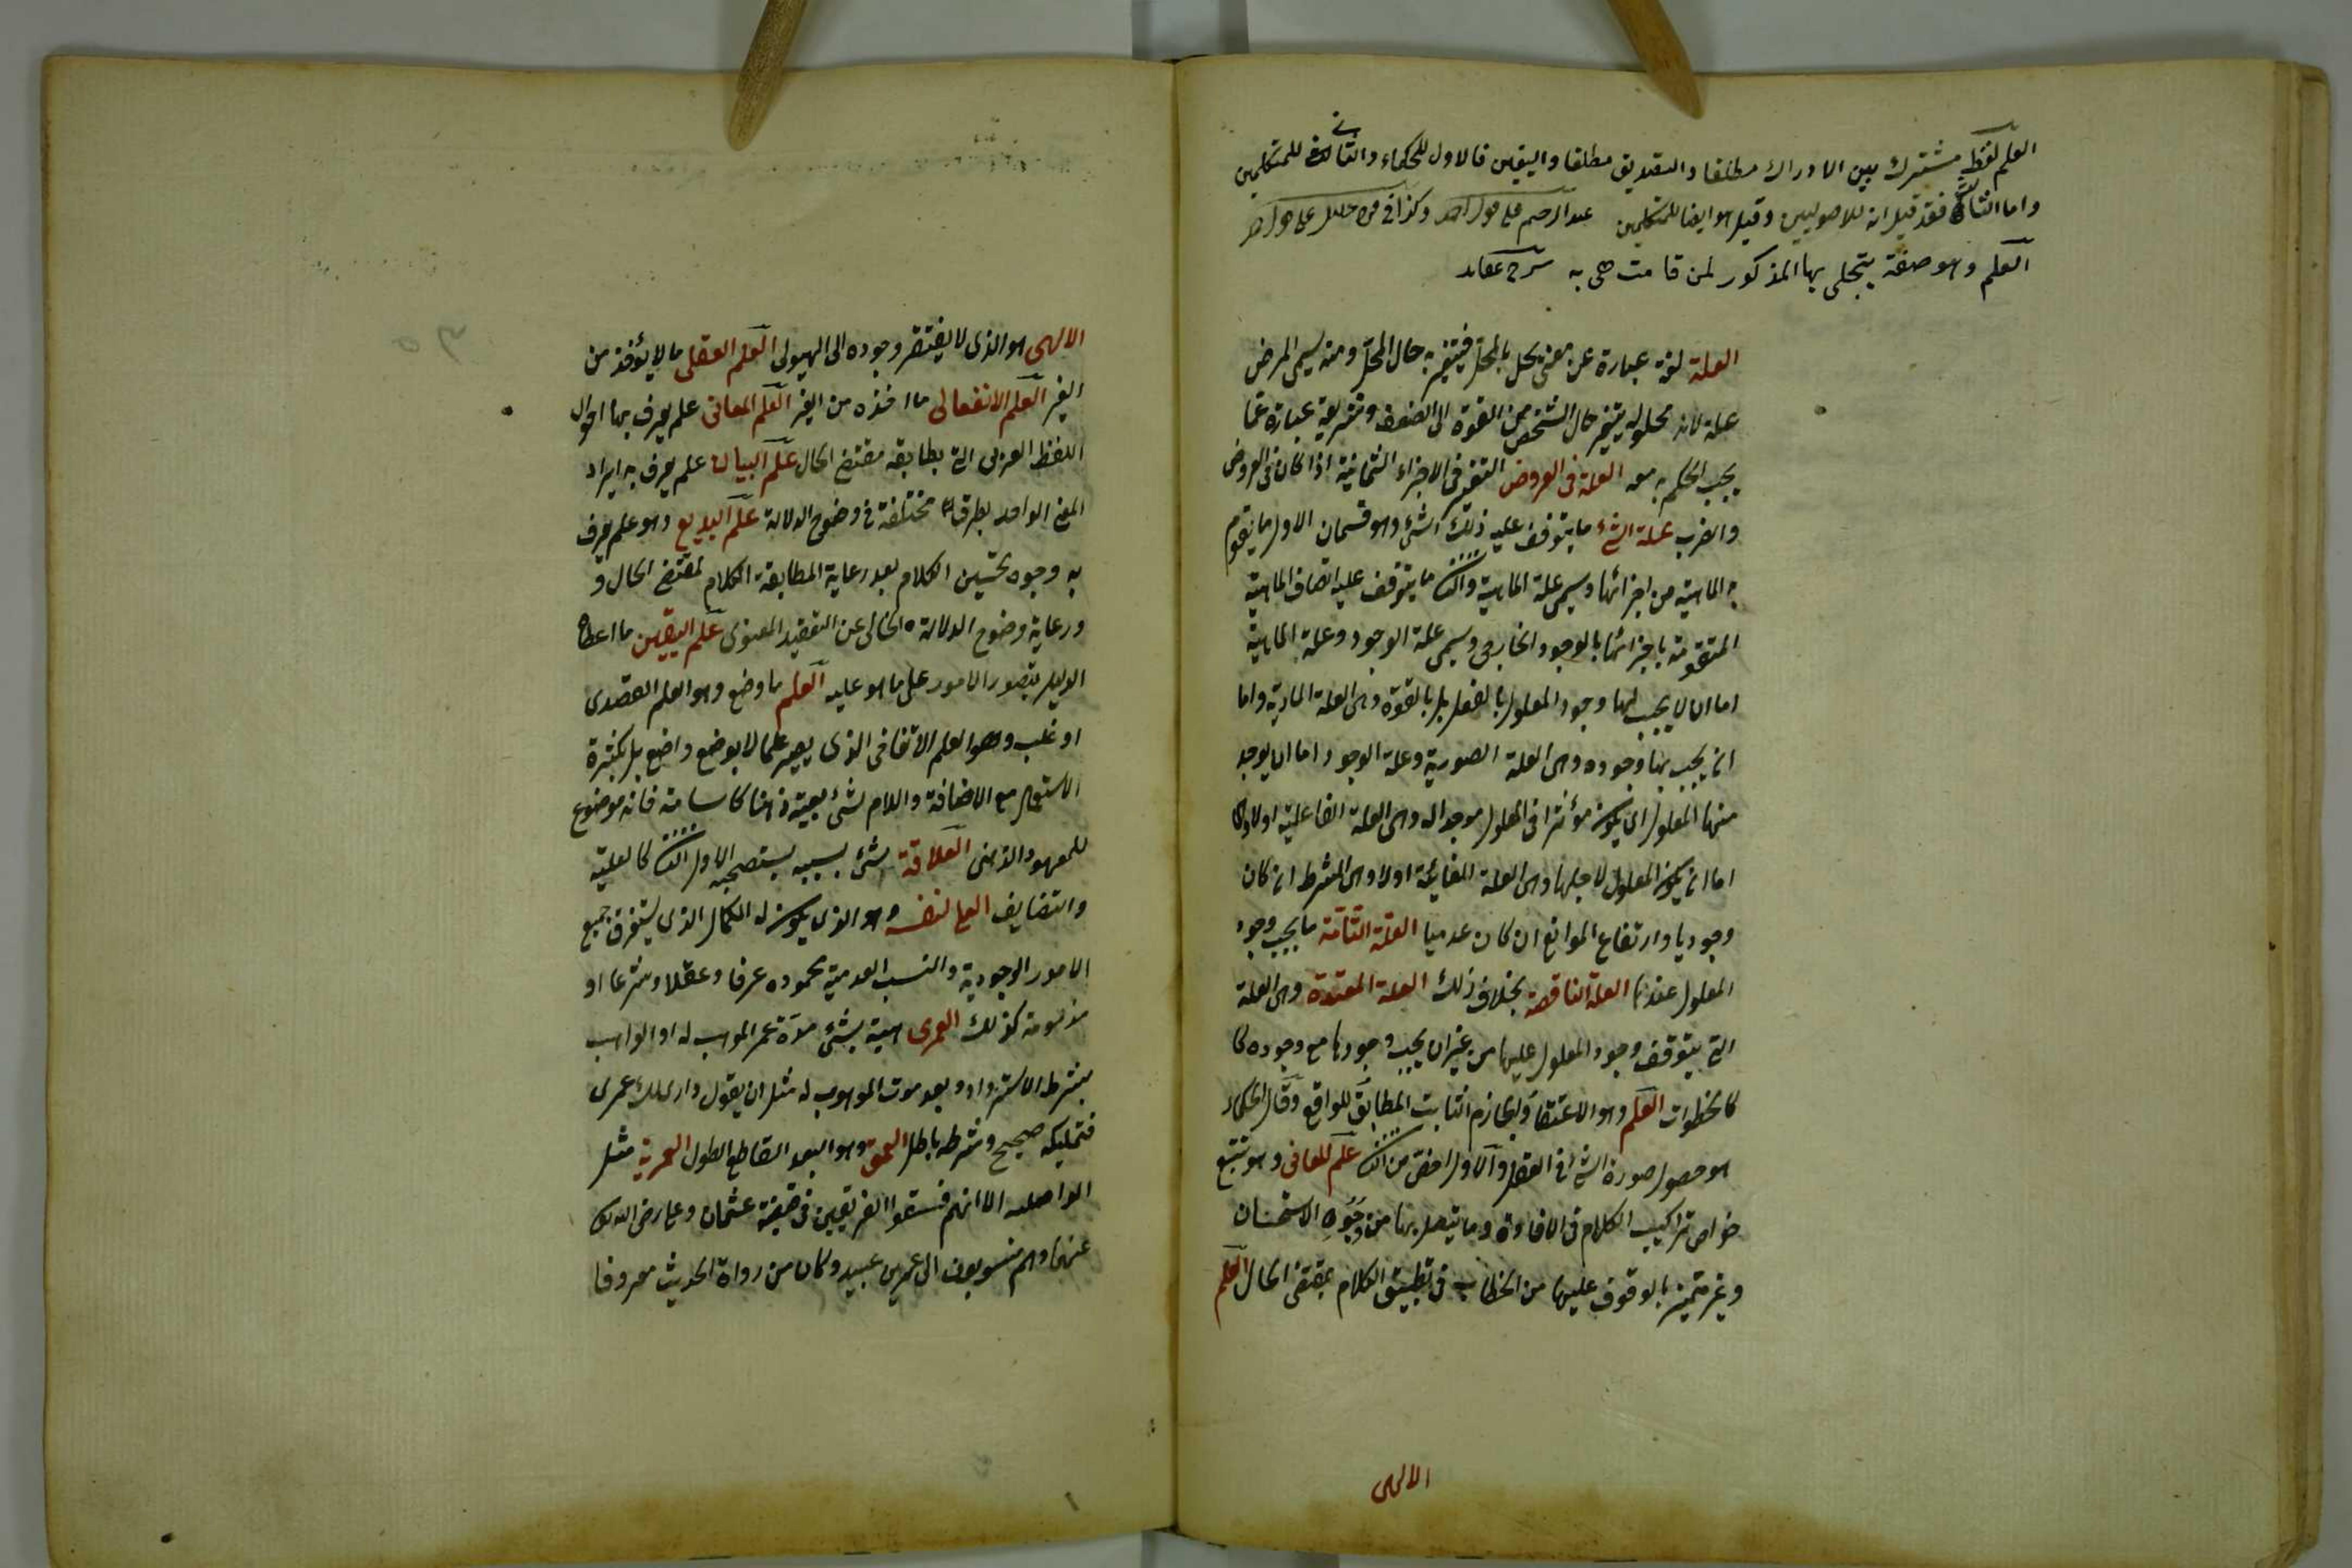 العلم لفظ مشترك بين الادراك مطلقا والتصديق مطلقا واليقين فالاول للحكماء والثاني للمتكلمين
واما الثالث فقد قيل انه للاصوليين وقيل هو ايضا للمتكلمين عبد الرحيم على
العلم وهو صفة يتجلى بها المذكور لمن قامت هى به شرح عقايد
العلة لغة عبارة عن معنى يحل بالمحل فيتغير به حال المحل ومنه يسمى المرض
علة لانه بحلوله يتغير حال الشخص من القوة الى الضعف وشريعة عبارة عما
يجب الحكم به معه العلة فى العروض التغير فى الاجزاء الثمانية اذا كان فى العروض
والضرب علة الشئ ما يتوقف عليه ذلك الشئ وهو قسمان الاول ما تقوم
به الماهية من اجزائها ويسمى علة الماهية والثا ما يتوقف عليه اتصاف الماهية
المتقومة باجزائها بالوجود الخارجى ويسمى علة الوجود وعلة الماهية
اما ان لا يجب بها وجود المعلول بالفعل بل بالقوة وهى العلة المادية واما
ان يجب بها وجوده وهى العلة الصورية وعلة الوجود اما ان يوجد
منها المعلول اى يكون مؤثرا فى المعلول موجدا له وهى العلة الفاعلية اولا ولا
اما ان يكون المعلول لاجلها وهى العلة الغائية اولا وهى الشرط ان كان
وجوديا وارتفاع الموانع ان كان عدميا العلة التامة ما يجب وجود
المعلول عندها العلة الناقصة بخلاف ذلك العلة المعدة وهى العلة
التى يتوقف وجود المعلول عليها من غير ان يجب وجودها مع وجوده كا
كالخطوات العلم وهو الاعتقاد الجازم الثابت المطابق للواقع وقال الحكماء
هو حصول صورة الشئ فى العقل والاول اخص من الثا علم المعانى وهو تتبع
خواص تراكيب الكلام فى الافادة وما يتصل بها من وجوه الاستحسان
وغيره تميز بالوقوف عليها من الخطاء فى تطبيق الكلام بمقتضى الحال العلم
الالهى
الالهى هو الذى لا يفتقر وجوده الى الهيولى العلم العقلى ما لا يؤخذ من
الغير العلم الانفعالى ما اخذه من الغير العلم المعانى علم يعرف بها احوال
اللفظ العربى التى بطابقه مقتضى الحال علم البيان علم يعرف به ايراد
المعنى الواحد بطرق مختلفة فى وضوح الدلالة علم البديع وهو علم يعرف
به وجوه تحسين الكلام بعد رعاية المطابقة الكلام لمقتضى الحال و
ورعاية وضوح الدلالة الخالى عن التعقيد المعنوى علم اليقين ما اعطاه
الدليل بتصور الامور على ما هو عليه العلم ما وضع وهو العلم القصدى
او غلب وهو العلم الاتفاقى الذى يصير علما لا بوضع واضع بل بكثرة
الاستعمال مع الاضافة واللام لشئ بعينه ذهنا كاسامة فانه موضوع
للمعهود الذهنى العلاقة شئ بسببه يستصحب الاول الثا كالعلية
والتضايف العلى لنفسه وهو الذى يكون له الكمال الذى يستغرق جميع
الامور الوجودية والنسب العدمية محموده عرفا وعقلا وشرعا او
مذمومة كذلك العمرى هبة شئ مدة عمر الموهب له او الواهب
بشرط الاسترداد بعد موت الموهوب له مثل ان يقول دارى لك عمرى
فتمليكه صحيح وشرطه باطل العمق وهو البعد القاطع الطول العمرية مثل
الواصليه الا انهم فسقوا الفريقين فى قضية عثمان وعلى رضى الله
عنهما وهم منسوبون الى عمر بن عبيد وكان من رواة الحديث معروفا